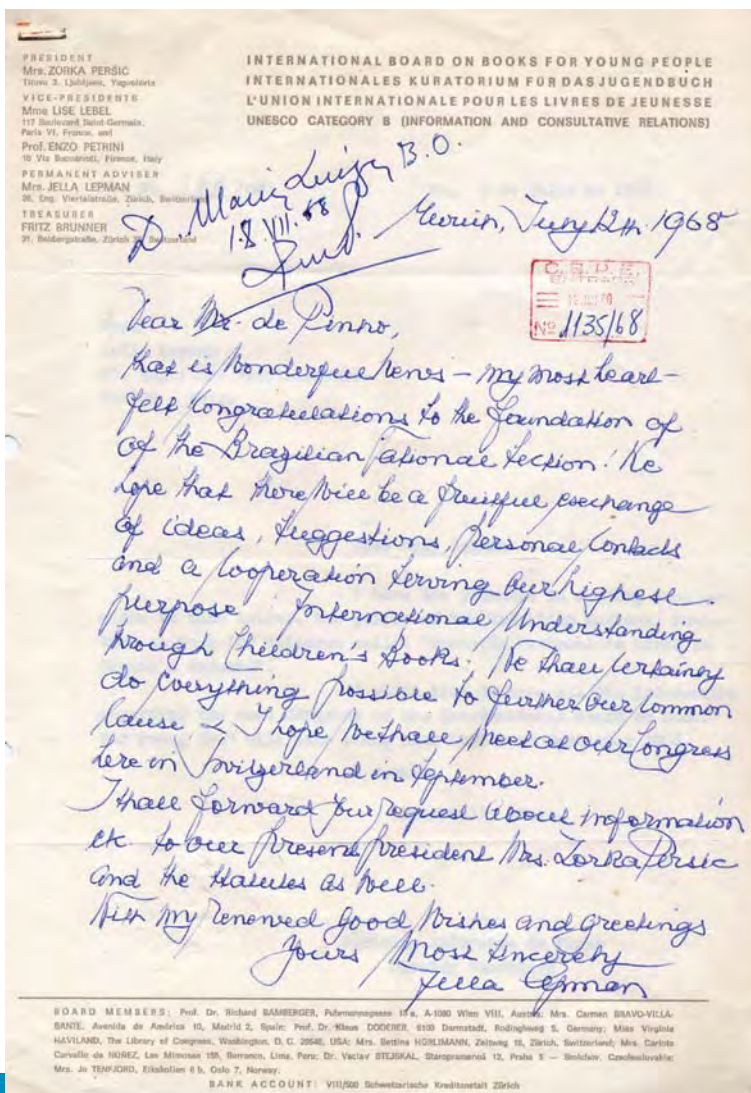 PRESIDENT
Mrs. ZORKA PERŠIĆ
Titova 3, Ljubljana, Yugoslavia
VICE-PRESIDENTS
Mme LISE LEBEL
117 Boulevard Saint-Germain,
Paris VI, France, and
Prof. ENZO PETRINI
10 Via Buonarroti, Firenze, Italy
PERMANENT ADVISER
Mrs. JELLA LEPMAN
Eng. Viertelstraße, Zürich, Switzerland
TREASURER
FRITZ BRUNNER
Zürich Switzerland
INTERNATIONAL BOARD ON BOOKS FOR YOUNG PEOPLE
INTERNATIONALES KURATORIUM FÜR DAS JUGENDBUCH
L'UNION INTERNATIONALE POUR LES LIVRES DE JEUNESSE
UNESCO CATEGORY B (INFORMATION AND CONSULTATIVE RELATIONS)
D. Maria Luiza B.O.
18.VII.68
Zurich, July 12th 1968
Nº 1135/68
Dear Mr. de Pinho,
that is wonderful news – my most heart-
felt congratulations to the foundation of
of the Brazilian National Section! We
hope that there will be a fruitful exchange
of ideas, suggestions, personal contacts
and a cooperation serving our highest
purpose International Understanding
through Children's Books. We shall certainly
do everything possible to further our common
cause – I hope we shall meet at our Congress
here in Switzerland in September.
I shall forward your request about information
etc. to our present president Mrs. Zorka Persic
and the statutes as well.
With my renewed good wishes and greetings
Yours most sincerely
Jella Lepman
BOARD MEMBERS: Prof. Dr. Richard BAMBERGER, A-1080 Wien VIII, Austria; Mrs. Carmen BRAVO-VILLA-
SANTE, Avenida de América 10, Madrid 2, Spain; Prof. Dr. Klaus DODERER, 6100 Darmstadt, Rodinghweg 5, Germany; Miss Virginia
HAVILAND, The Library of Congress, Washington, D. C. 20540, USA; Mrs. Bettina HÜRLIMANN, Zeltweg Zürich, Switzerland; Mrs. Carlota
Carvallo de NÚÑEZ, Las Mimosas 155, Barranco, Lima, Peru; Dr. Vaclav STEJSKAL, Staropramenná 12, Praha 5 – Smíchov, Czechoslovakia;
Mrs. Jo TENFJORD, Eikskollen 6 b, Oslo 7, Norway.
BANK ACCOUNT: VIII/500 Schweizerische Kreditanstalt Zürich